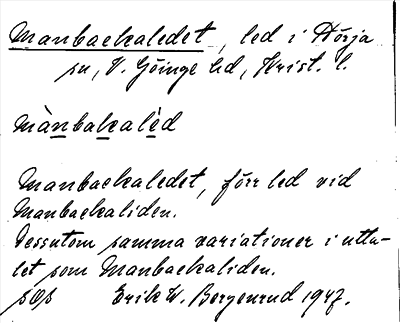 Manbackaledet, led i Hörja
sn, V. Göinge hd, Krist. l.
mànbakalèd
Manbackaledet, förr led vid
Manbackaliden.
Dessutom samma variationer i utta-
let som Manbackaliden.
sOs Erik W. Bergenrud 1947.